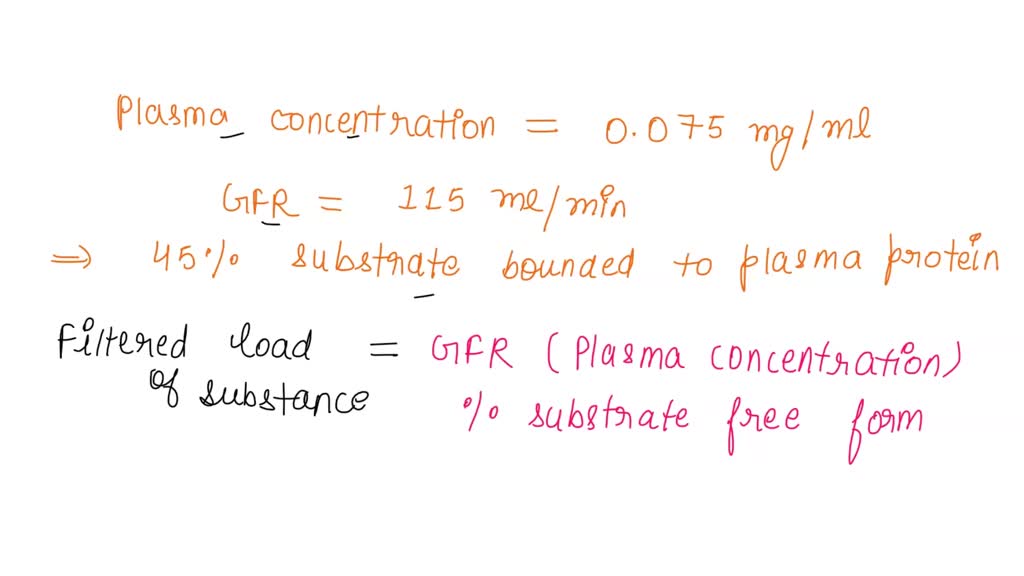 Plasma concentration = 0.075 mg/ml
GFR = 115 ml/min
⇒ 45% substrate bounded to plasma protein
Filtered load = GFR (Plasma concentration)
of substance % substrate free form